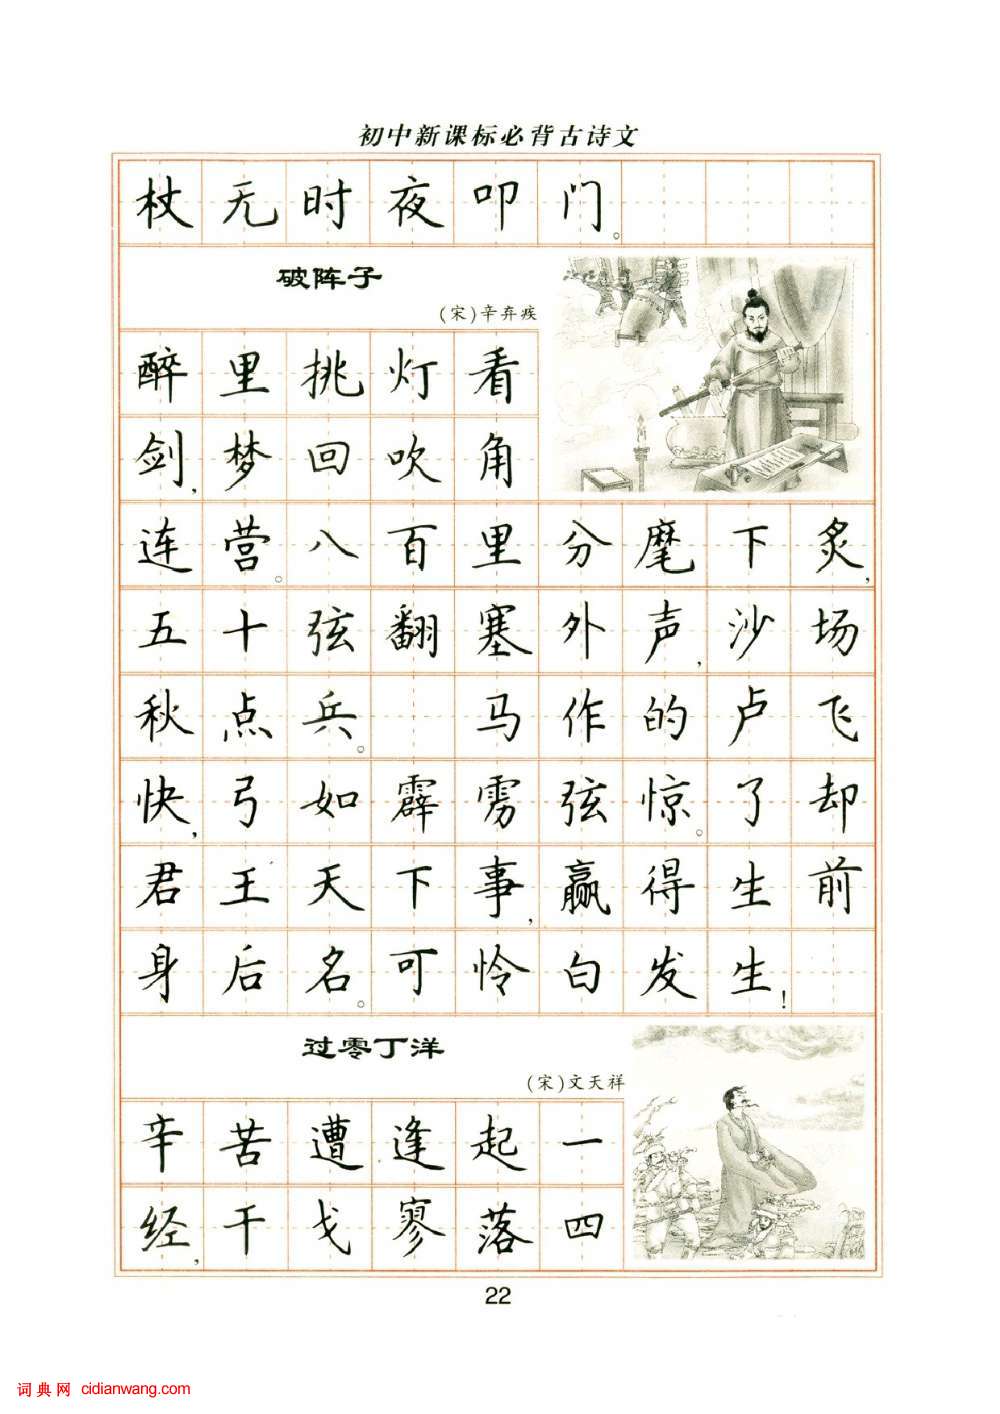 初中新课标必背古诗文
杖无时夜叩门。
破阵子
(宋)辛弃疾
醉里挑灯看
剑,梦回吹角
连营。八百里分麾下炙,
五十弦翻塞外声,沙场
秋点兵。 马作的卢飞
快,弓如霹雳弦惊。了却
君王天下事,赢得生前
身后名。可怜白发生!
过零丁洋
(宋)文天祥
辛苦遭逢起一
经,干戈寥落四
22
词典网 cidianwang.com